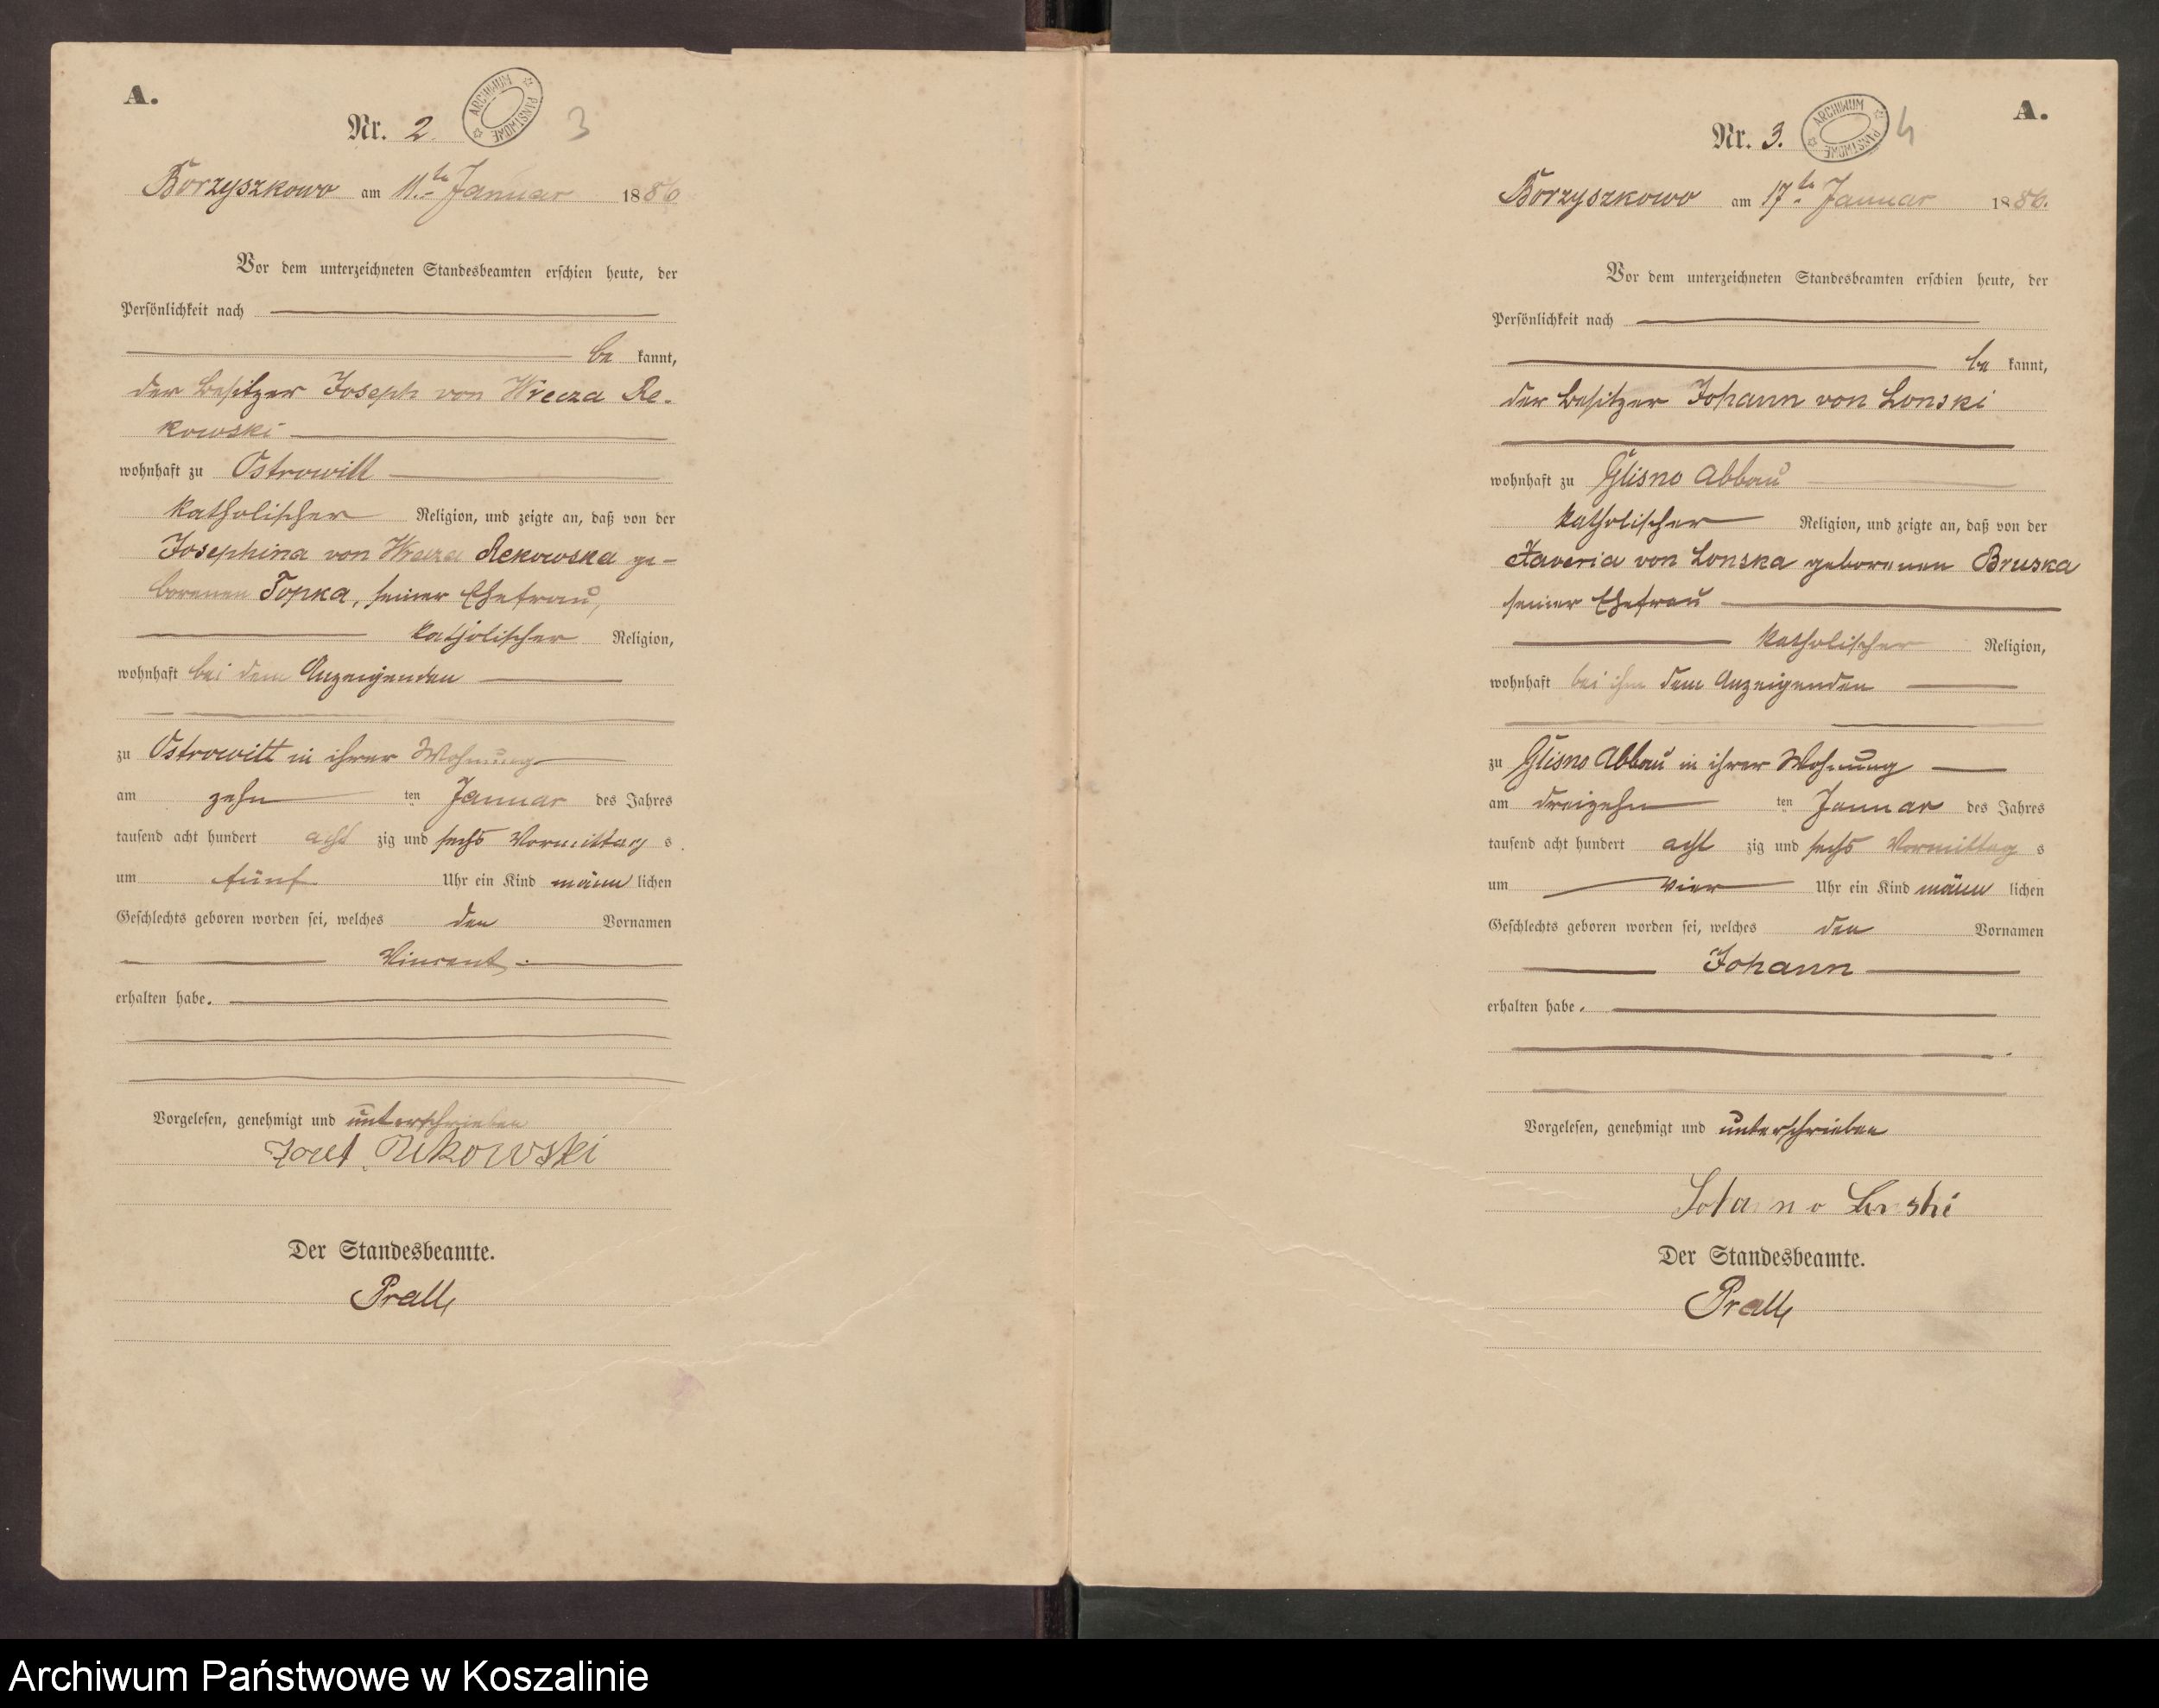 A.
Nr. 2.
ARCHIWUM PAŃSTWOWE
3
Borzyszkowo am 11.ten Januar 1886
Vor dem unterzeichneten Standesbeamten erschien heute, der
Persönlichkeit nach
be kannt,
der Besitzer Joseph von Wrecza Re-
kowski
wohnhaft zu Ostrowitt
katholischer Religion, und zeigte an, daß von der
Josephina von Wrecza Rekowska ge-
borenen Topka, seiner Ehefrau,
katholischer Religion,
wohnhaft bei dem Anzeigenden
zu Ostrowitt in ihrer Wohnung
am zehn ten Januar des Jahres
tausend acht hundert acht zig und sechs Vormittag s
um fünf Uhr ein Kind männ lichen
Geschlechts geboren worden sei, welches den Vornamen
Vincent
erhalten habe.
Vorgelesen, genehmigt und unterschrieben
Rekowski
Der Standesbeamte.
Prall
A.
Nr. 3.
ARCHIWUM PAŃSTWOWE
4
Borzyszkowo am 17ten Januar 1886.
Vor dem unterzeichneten Standesbeamten erschien heute, der
Persönlichkeit nach
be kannt,
der Besitzer Johann von Lonski
wohnhaft zu Glisno Abbau
katholischer Religion, und zeigte an, daß von der
Xaveria von Lonska geborenen Bruska
seiner Ehefrau
katholischer Religion,
wohnhaft bei ihm dem Anzeigenden
zu Glisno Abbau in ihrer Wohnung
am dreizehn ten Januar des Jahres
tausend acht hundert acht zig und sechs Vormittag s
um vier Uhr ein Kind männ lichen
Geschlechts geboren worden sei, welches den Vornamen
Johann
erhalten habe.
Vorgelesen, genehmigt und unterschrieben
Der Standesbeamte.
Prall
Archiwum Państwowe w Koszalinie